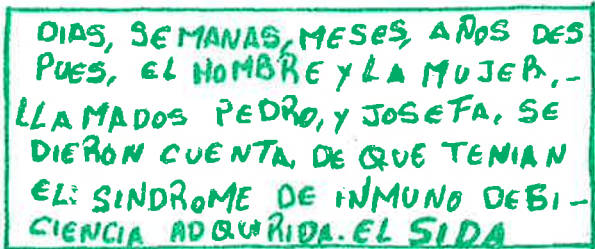 DIAS, SEMANAS, MESES, AÑOS DES
PUES, EL HOMBRE Y LA MUJER,-
LLAMADOS PEDRO, Y JOSEFA, SE
DIERON CUENTA, DE QUE TENIAN
EL: SINDROME DE INMUNO DEBI-
CIENCIA ADQURIDA. EL SIDA